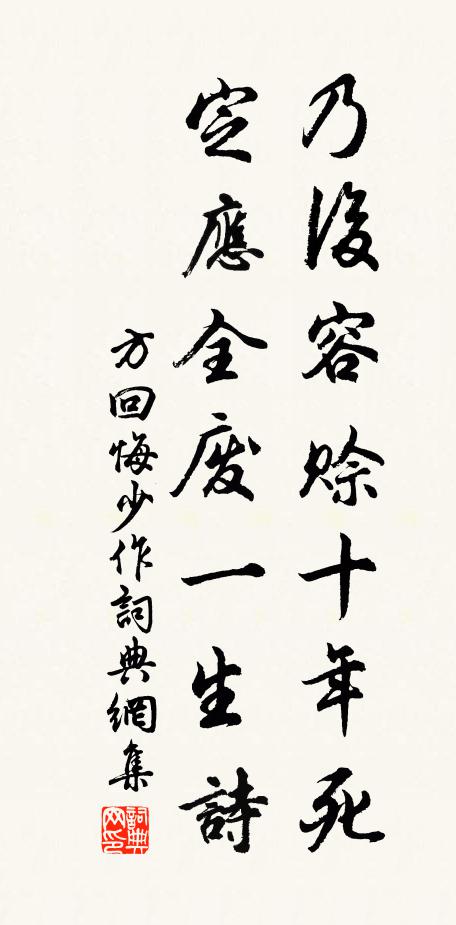 乃復容賒十年死
定應全廢一生詩
方回悔少作詞典網集
詞典网印